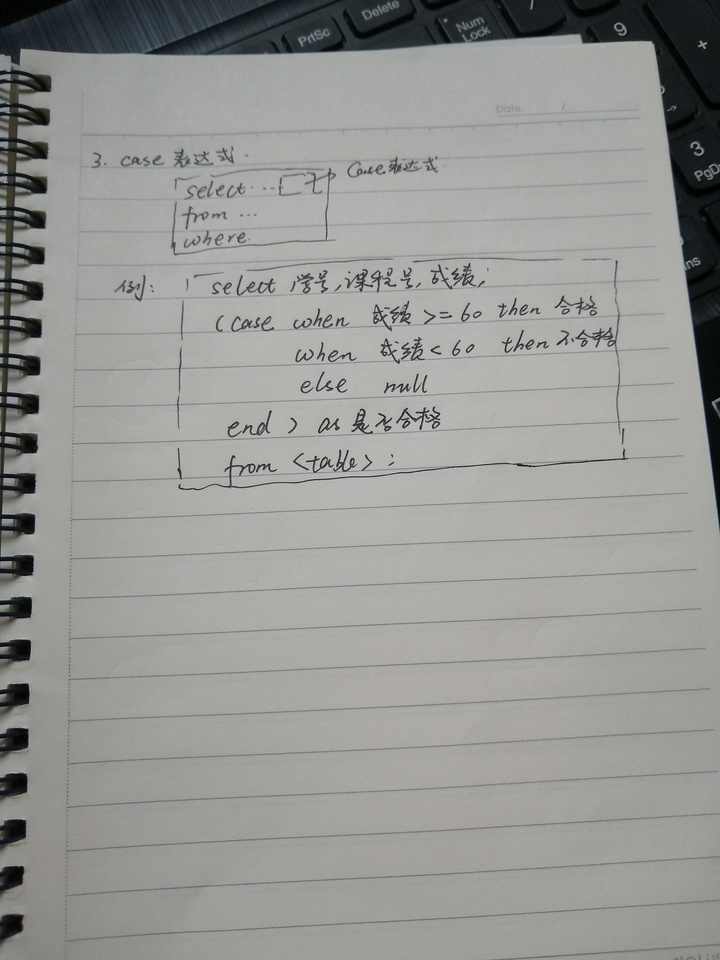 Delete
PrtSc
Num
Lock
7
9
+
3
PgD
ns
Date. /
3. case 表达式.
Case表达式
select ... [ ]
from ...
where
例: select 学号,课程号,成绩;
(case when 成绩 >= 60 then 合格
when 成绩 < 60 then 不合格
else null
end ) as 是否合格
from <table> ;